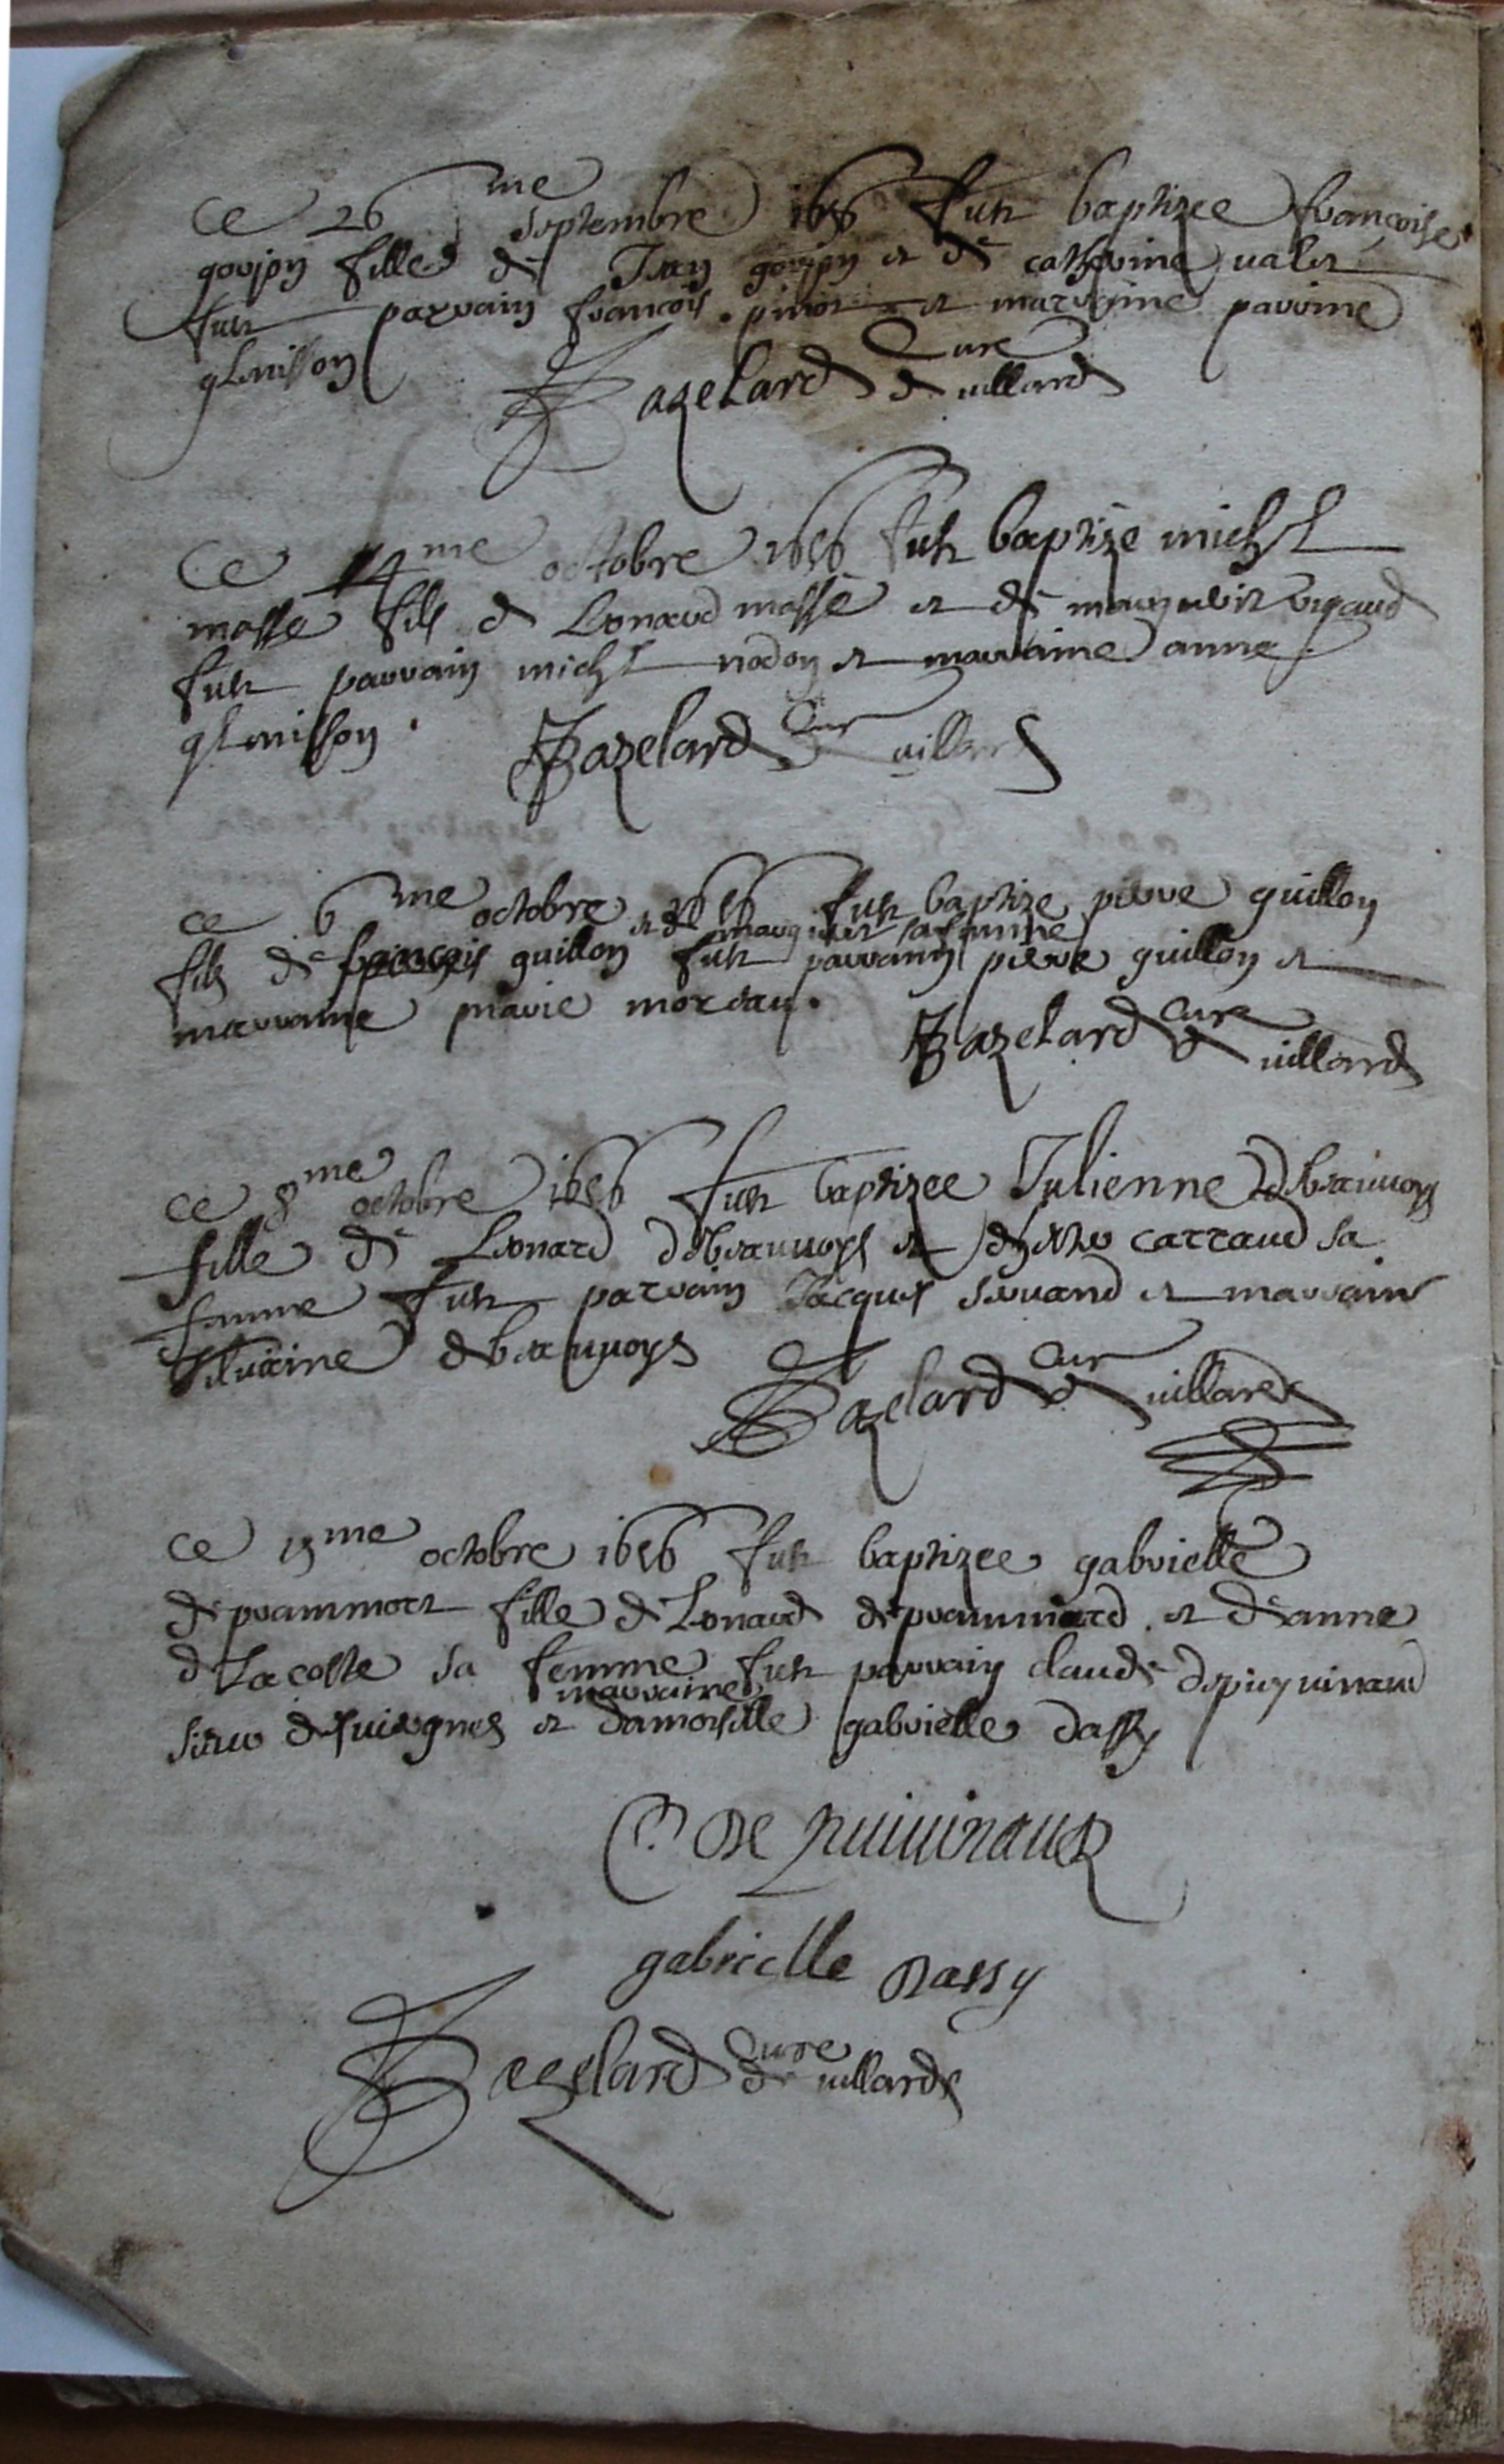 Ce 26me septembre 1656 fut baptizee françoise
goujon fille de Jean goujon et de catherine valet
fut parrain françois pinot et marraine perrine
glenisson
Bazelard Cure de villard
Ce 4me octobre 1656 fut baptizé michel
massé fils de Leonard massé et de marguerite rigaud
fut parrain michel nadon et marraine anne
glenisson . Bazelard Cure de villard
ce 6me octobre 1656 fut baptize pierre guillon
fils de françois guillon et de marguerite sa femme fut parrain pierre guillon et
marraine marie moreau .
Bazelard Cure de villard
ce 8me octobre 1656 fut baptizee Julienne debeauvoys
fille de Leonard debeauvoys et de carraud sa
femme fut parrain Jacques et marraine
silvaine debeauvoys
Bazelard Cure de villard
ce 15me octobre 1656 fut baptizee gabrielle
de fille de Leonard de et de anne
de Lacoste sa femme fut parrain claude depuyvinaud
sieur de et marraine damoiselle gabrielle dassy
C De puivinaud
gabrielle Dassy
Bazelard Cure de villard